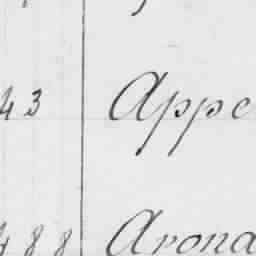 43 Appe
488 Arona